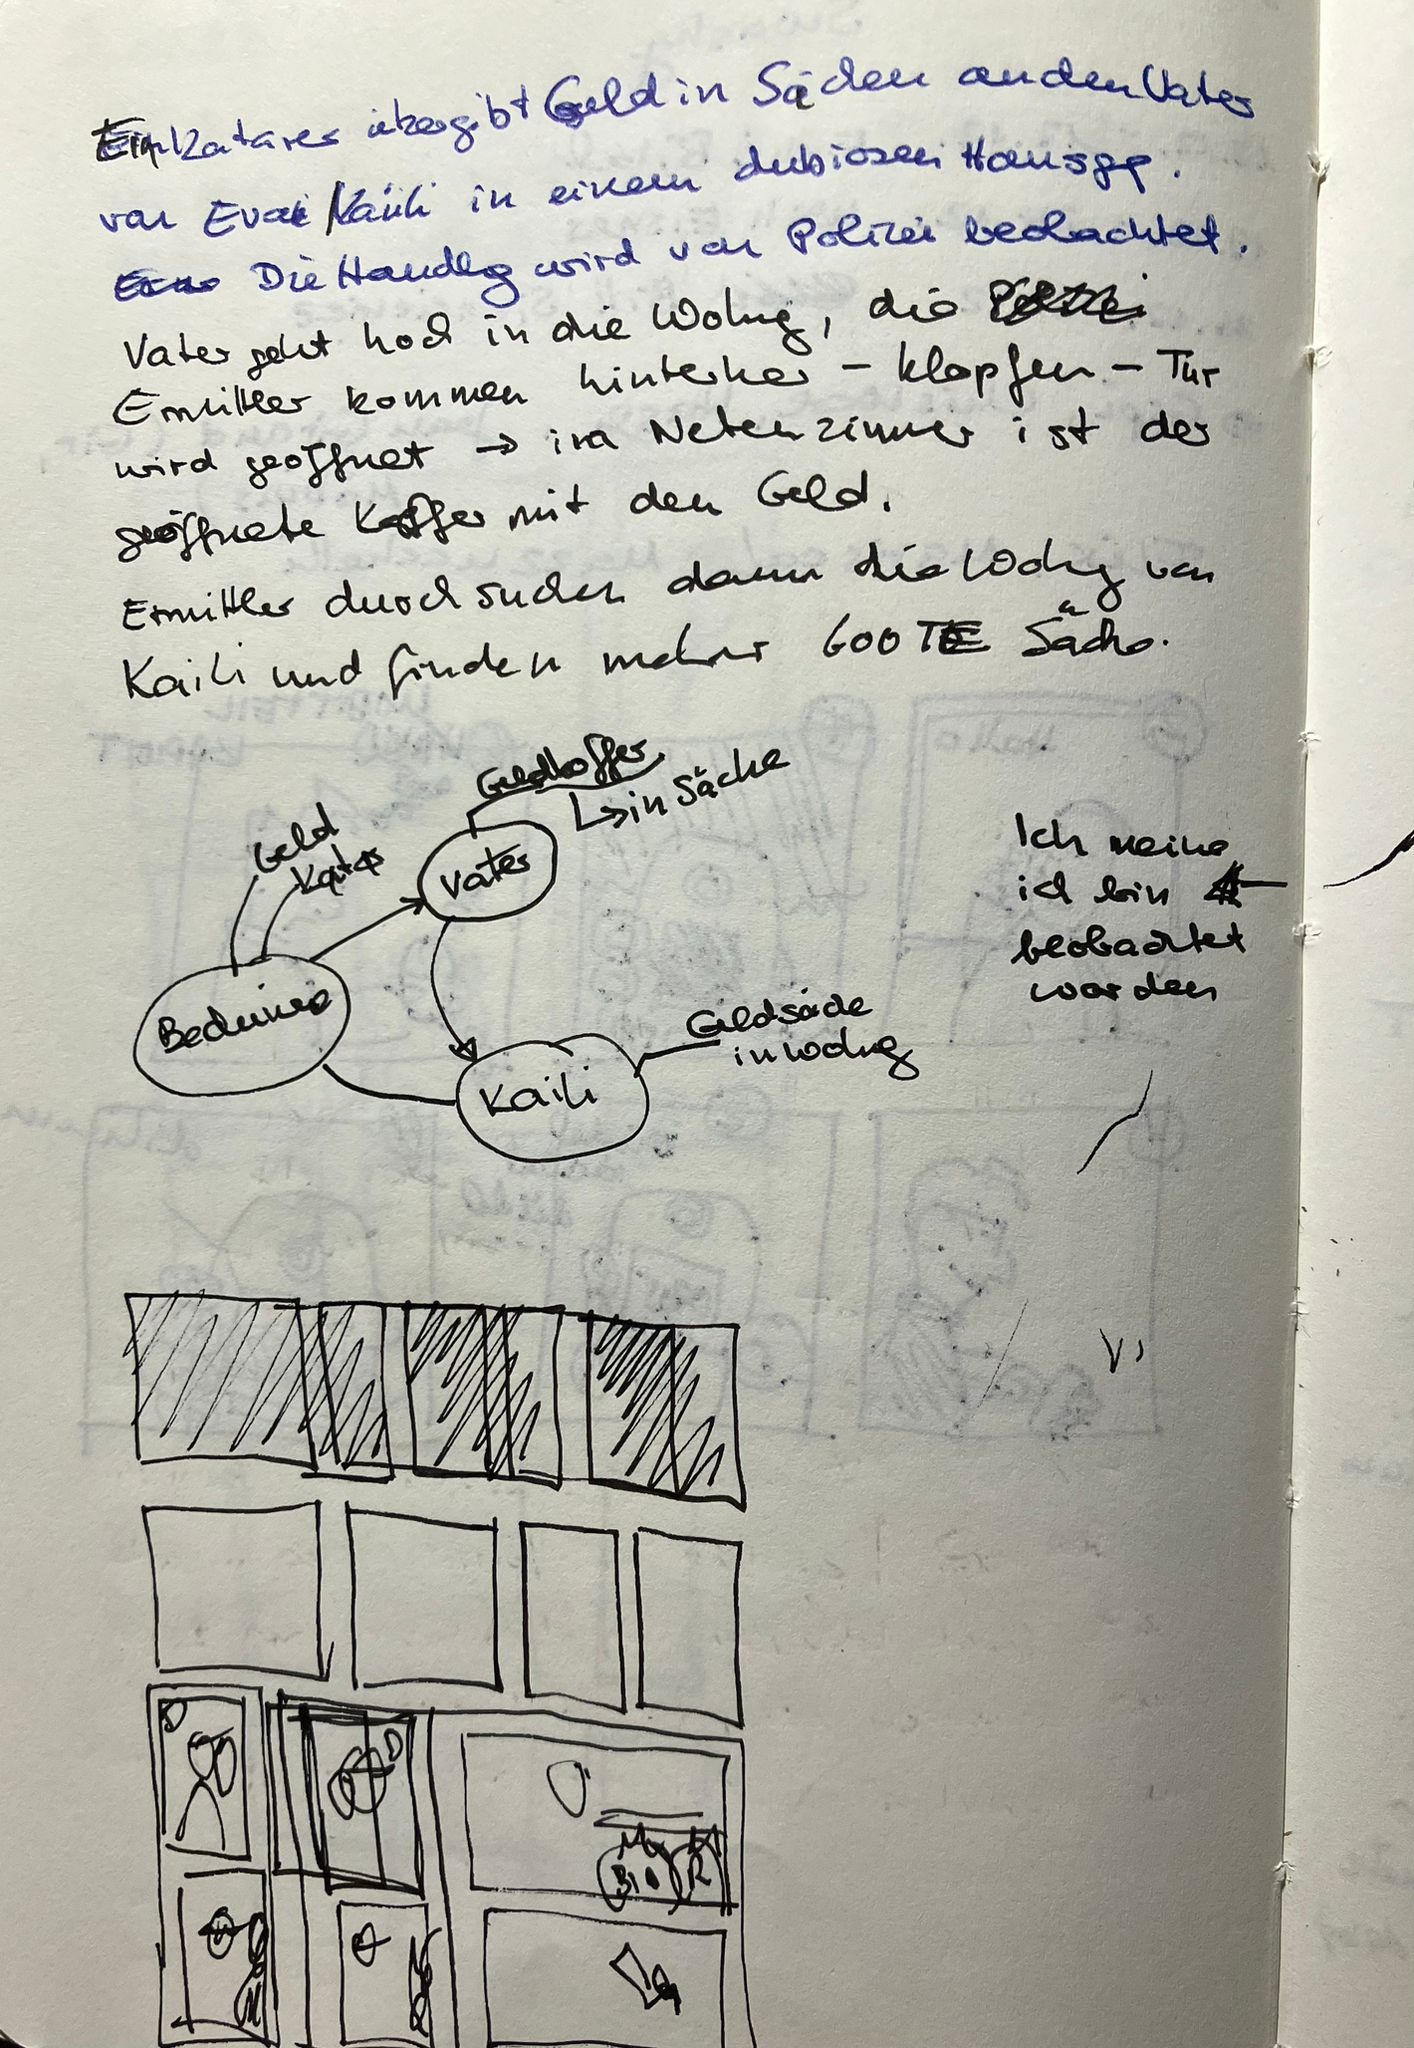 Ein Katarer übergibt Geld in Säcken an den Vater
von Eva Kaili in einem dubiosen Hausgg.
Die Handlg wird von Polizei beobachtet.
Vater geht hoch in die Wohng, die
Ermittler kommen hinterher - klopfen - Tür
wird geöffnet → im Nebenzimmer ist der
geöffnete Koffer mit den Geld.
Ermittler durchsuchen dann die Wohng von
Kaili und finden mehr 600 TE Säcke.
Geldkoffer
↳ in Säcke
Geld
Katar
Vater
Ich meine
ich bin
beobachtet
worden
Beduine
Geldsäcke
in Wohng
Kaili
D
D
Bio